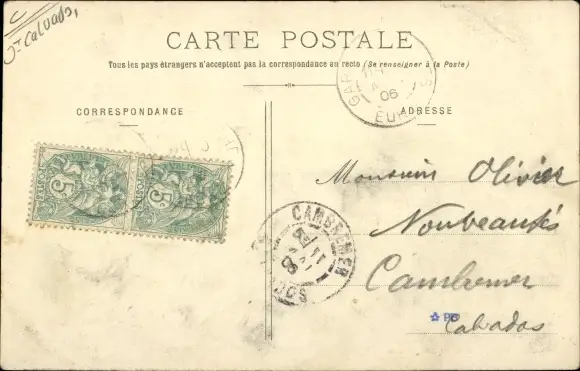 C
Jt Calvados,
CARTE POSTALE
Tous les pays étrangers n'acceptent pas la correspondance au recto (Se renseigner à la Poste)
CORRESPONDANCE
ADRESSE
GAR
06
EUR
5c
POSTES
5c
POSTES
Monsieur Olivier
Nouveautés
Cambremer
Calvados
CAMBREMER
11
DOS